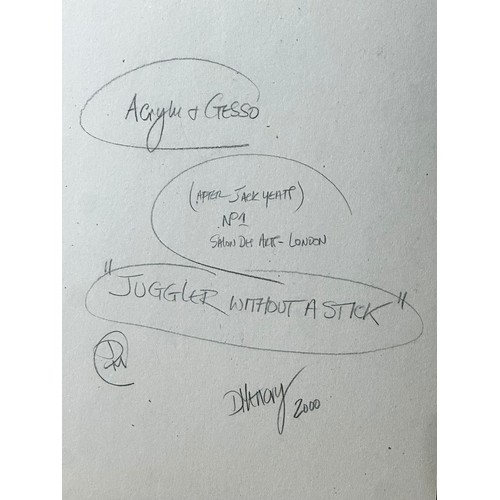 Acrylic + GESSO
(AFTER JACK YEATS)
Nº1
SALON DES ARTS - LONDON
"JUGGLER WITHOUT A STICK"
2000